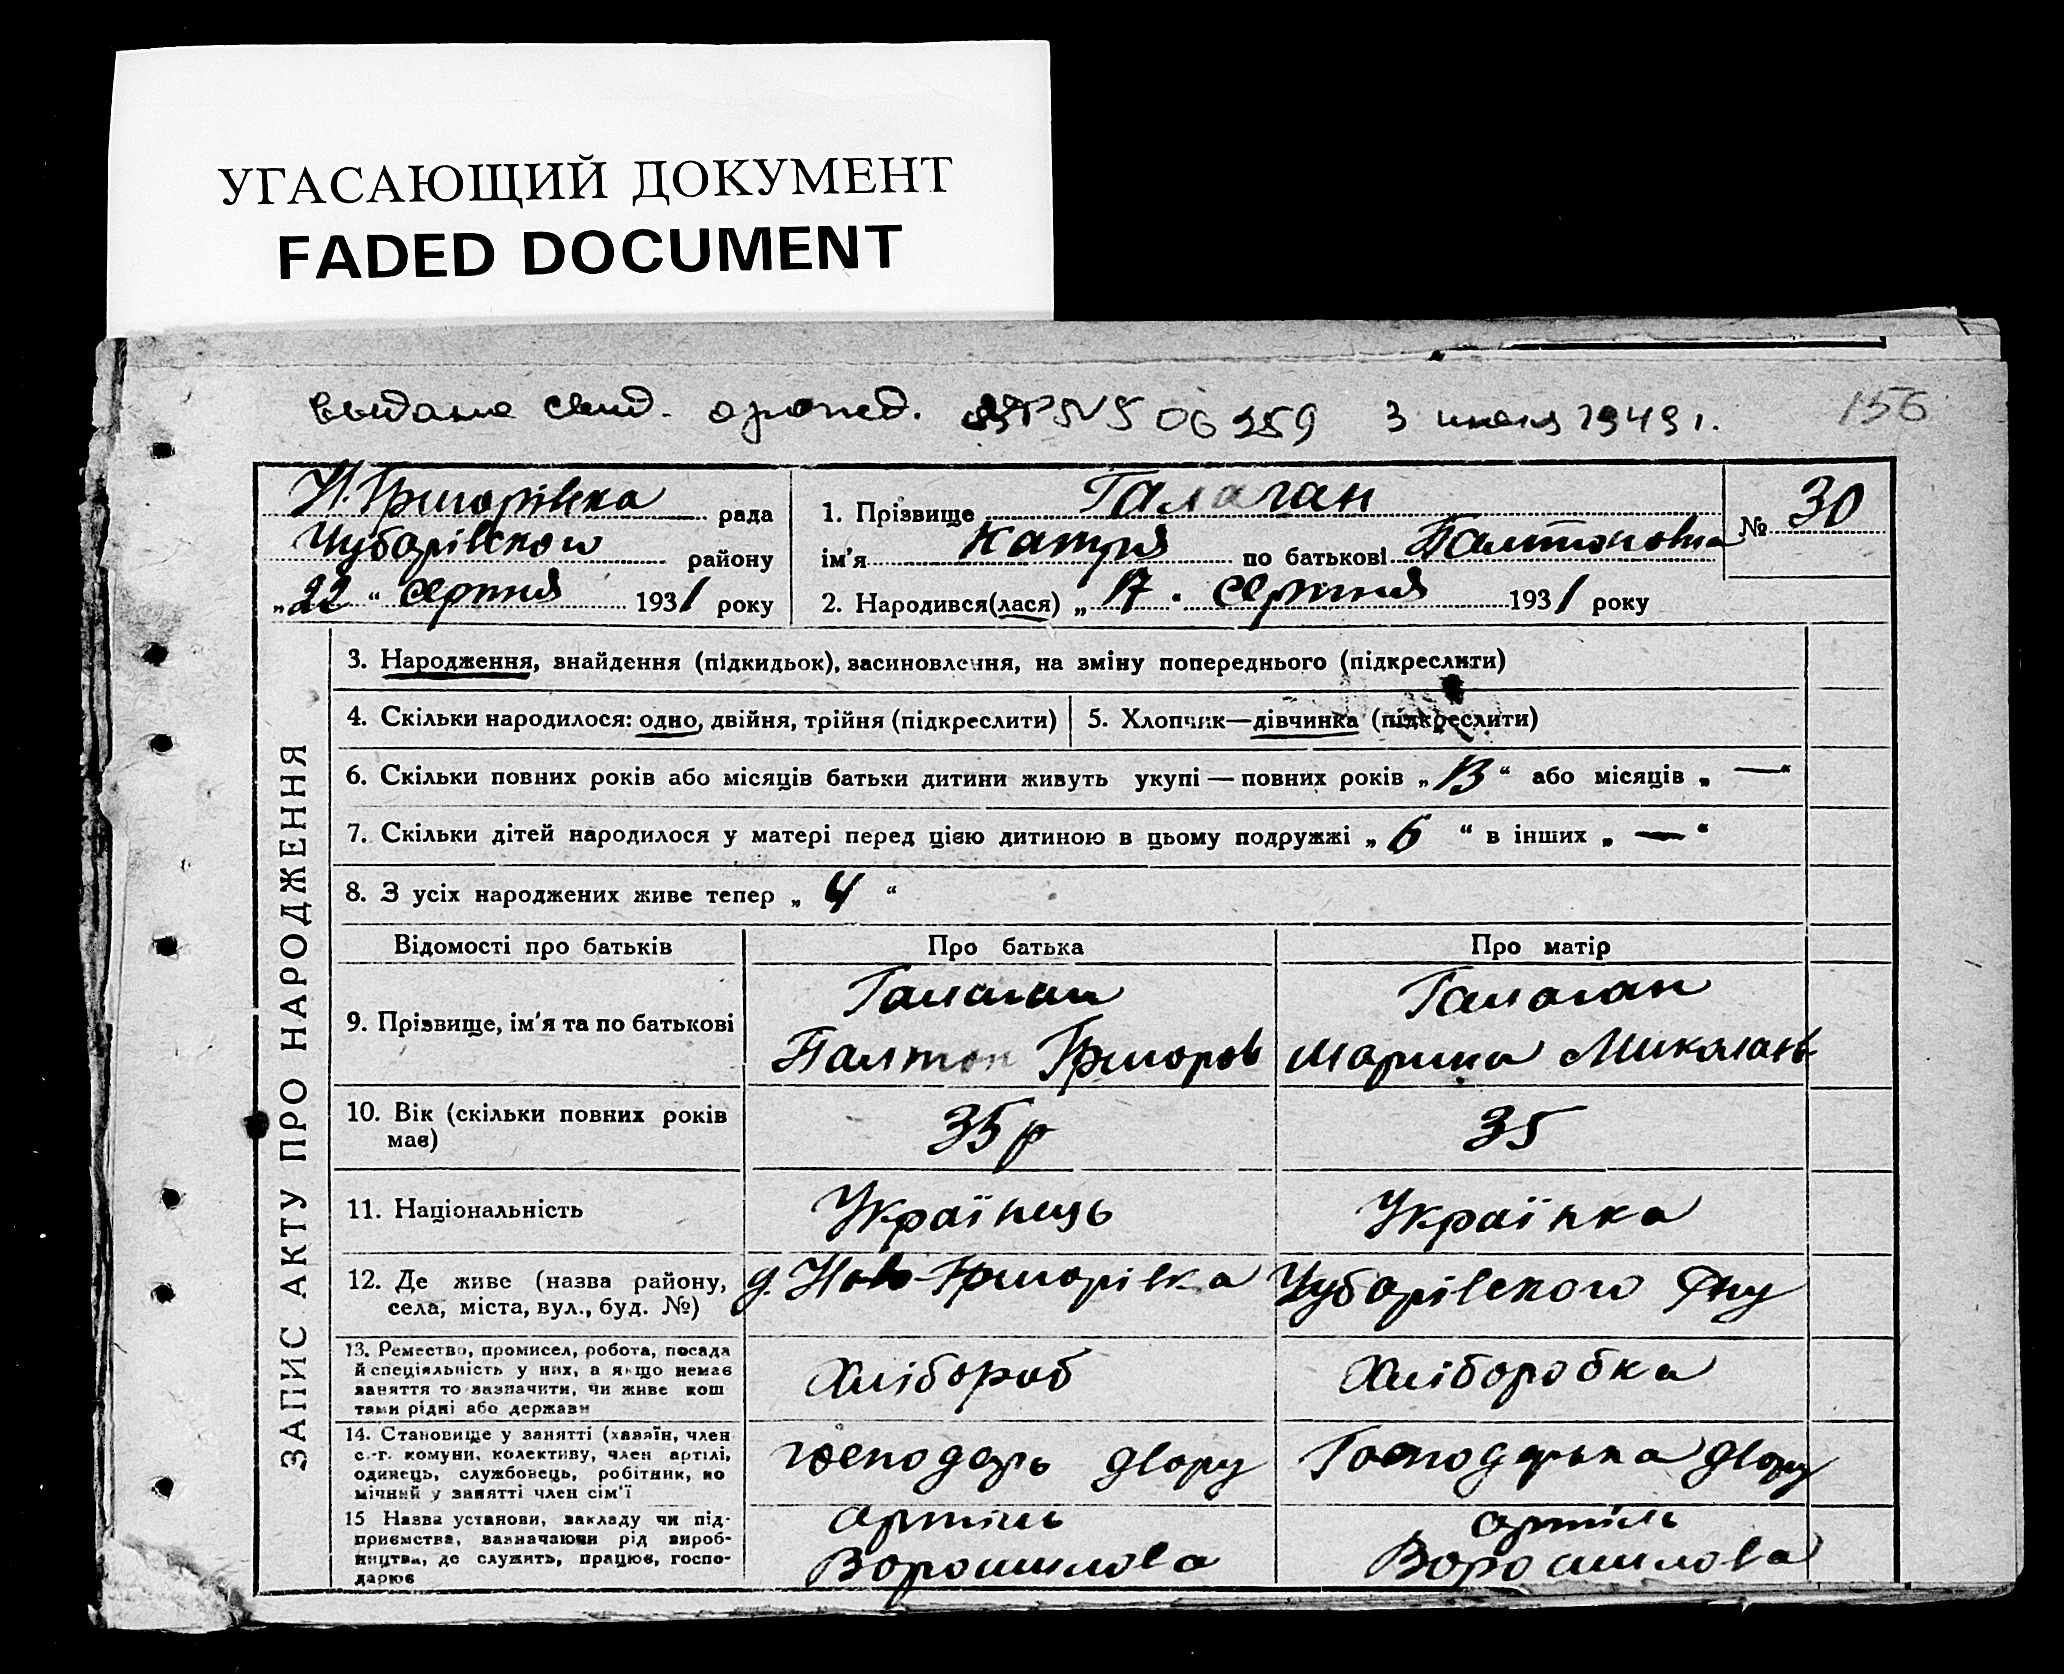 УГАСАЮЩИЙ ДОКУМЕНТ
FADED DOCUMENT
выдано свид. о рожд. 06259 3 июня 1949 г.
156
Н. Григорівка рада
Чубарівского району
„22“ серпня 1931 року
1. Прізвище Галаган
ім'я Катря по батькові Палтоновна
№ 30
2. Народився(лася) „17. серпня 1931 року
ЗАПИС АКТУ ПРО НАРОДЖЕННЯ
3. Народження, внайдення (підкидьок), засиновлення, на зміну попереднього (підкреслити)
4. Скільки народилося: одно, двійня, трійня (підкреслити)
5. Хлопчик—дівчинка (підкреслити)
6. Скільки повних років або місяців батьки дитини живуть укупі — повних років „13“ або місяців „—“
7. Скільки дітей народилося у матері перед цією дитиною в цьому подружжі „6“ в інших „—“
8. З усіх народжених живе тепер „4“
Відомості про батьків Про батька Про матір
9. Прізвище, ім'я та по батькові
Галаган
Палтон Григоров
Галаган
Марина Миколаев
10. Вік (скільки повних років
має)
35 р
35
11. Національність
Українець
Українка
12. Де живе (назва району,
села, міста, вул., буд. №)
д. Ново-Григорівка
Чубарівского Р-ну
13. Ремество, промисел, робота, посада
й спеціяльність у них, а якщо немає
заняття то зазначити, чи живе кош
тами рідні або держави
Хлібороб
Хліборобка
14. Становище у занятті (хазяїн, член
с.-г. комуни, колективу, член артілі,
одинець, службовець, робітник, по
мічний у занятті член сім'ї
господарь двору
Господарька двору
15 Назва установи, закладу чи під-
приємства, зазначаючи рід вироб-
ництва, де служить, працює, госпо-
дарює
артіль
Ворошилова
артіль
Ворошилова